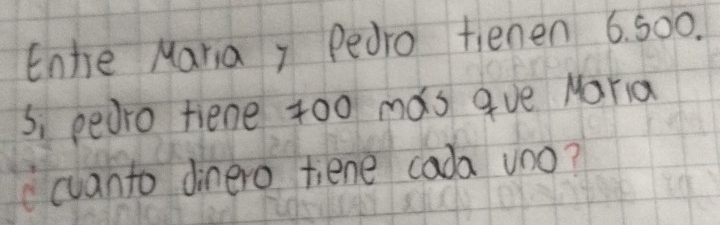 Entre Maria y Pedro tienen 6.500.
Si pedro tiene 700 más que Maria
¿cuanto dinero tiene cada uno?